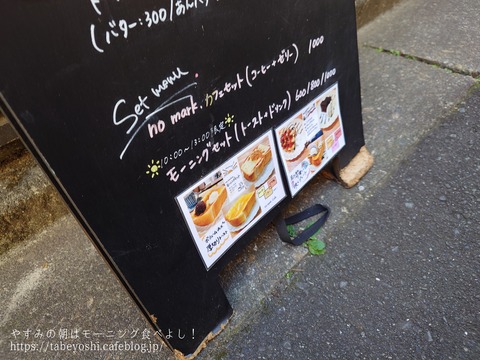 (バター:300/あんバ
Set menu
no mark.カフェセット(コーヒー+ゼリー) 1000
10:00~13:00限定
モーニングセット(トースト+ドリンク) 600/800/1000
やすみの朝はモーニング食べよし!
https://tabeyoshi.cafeblog.jp/